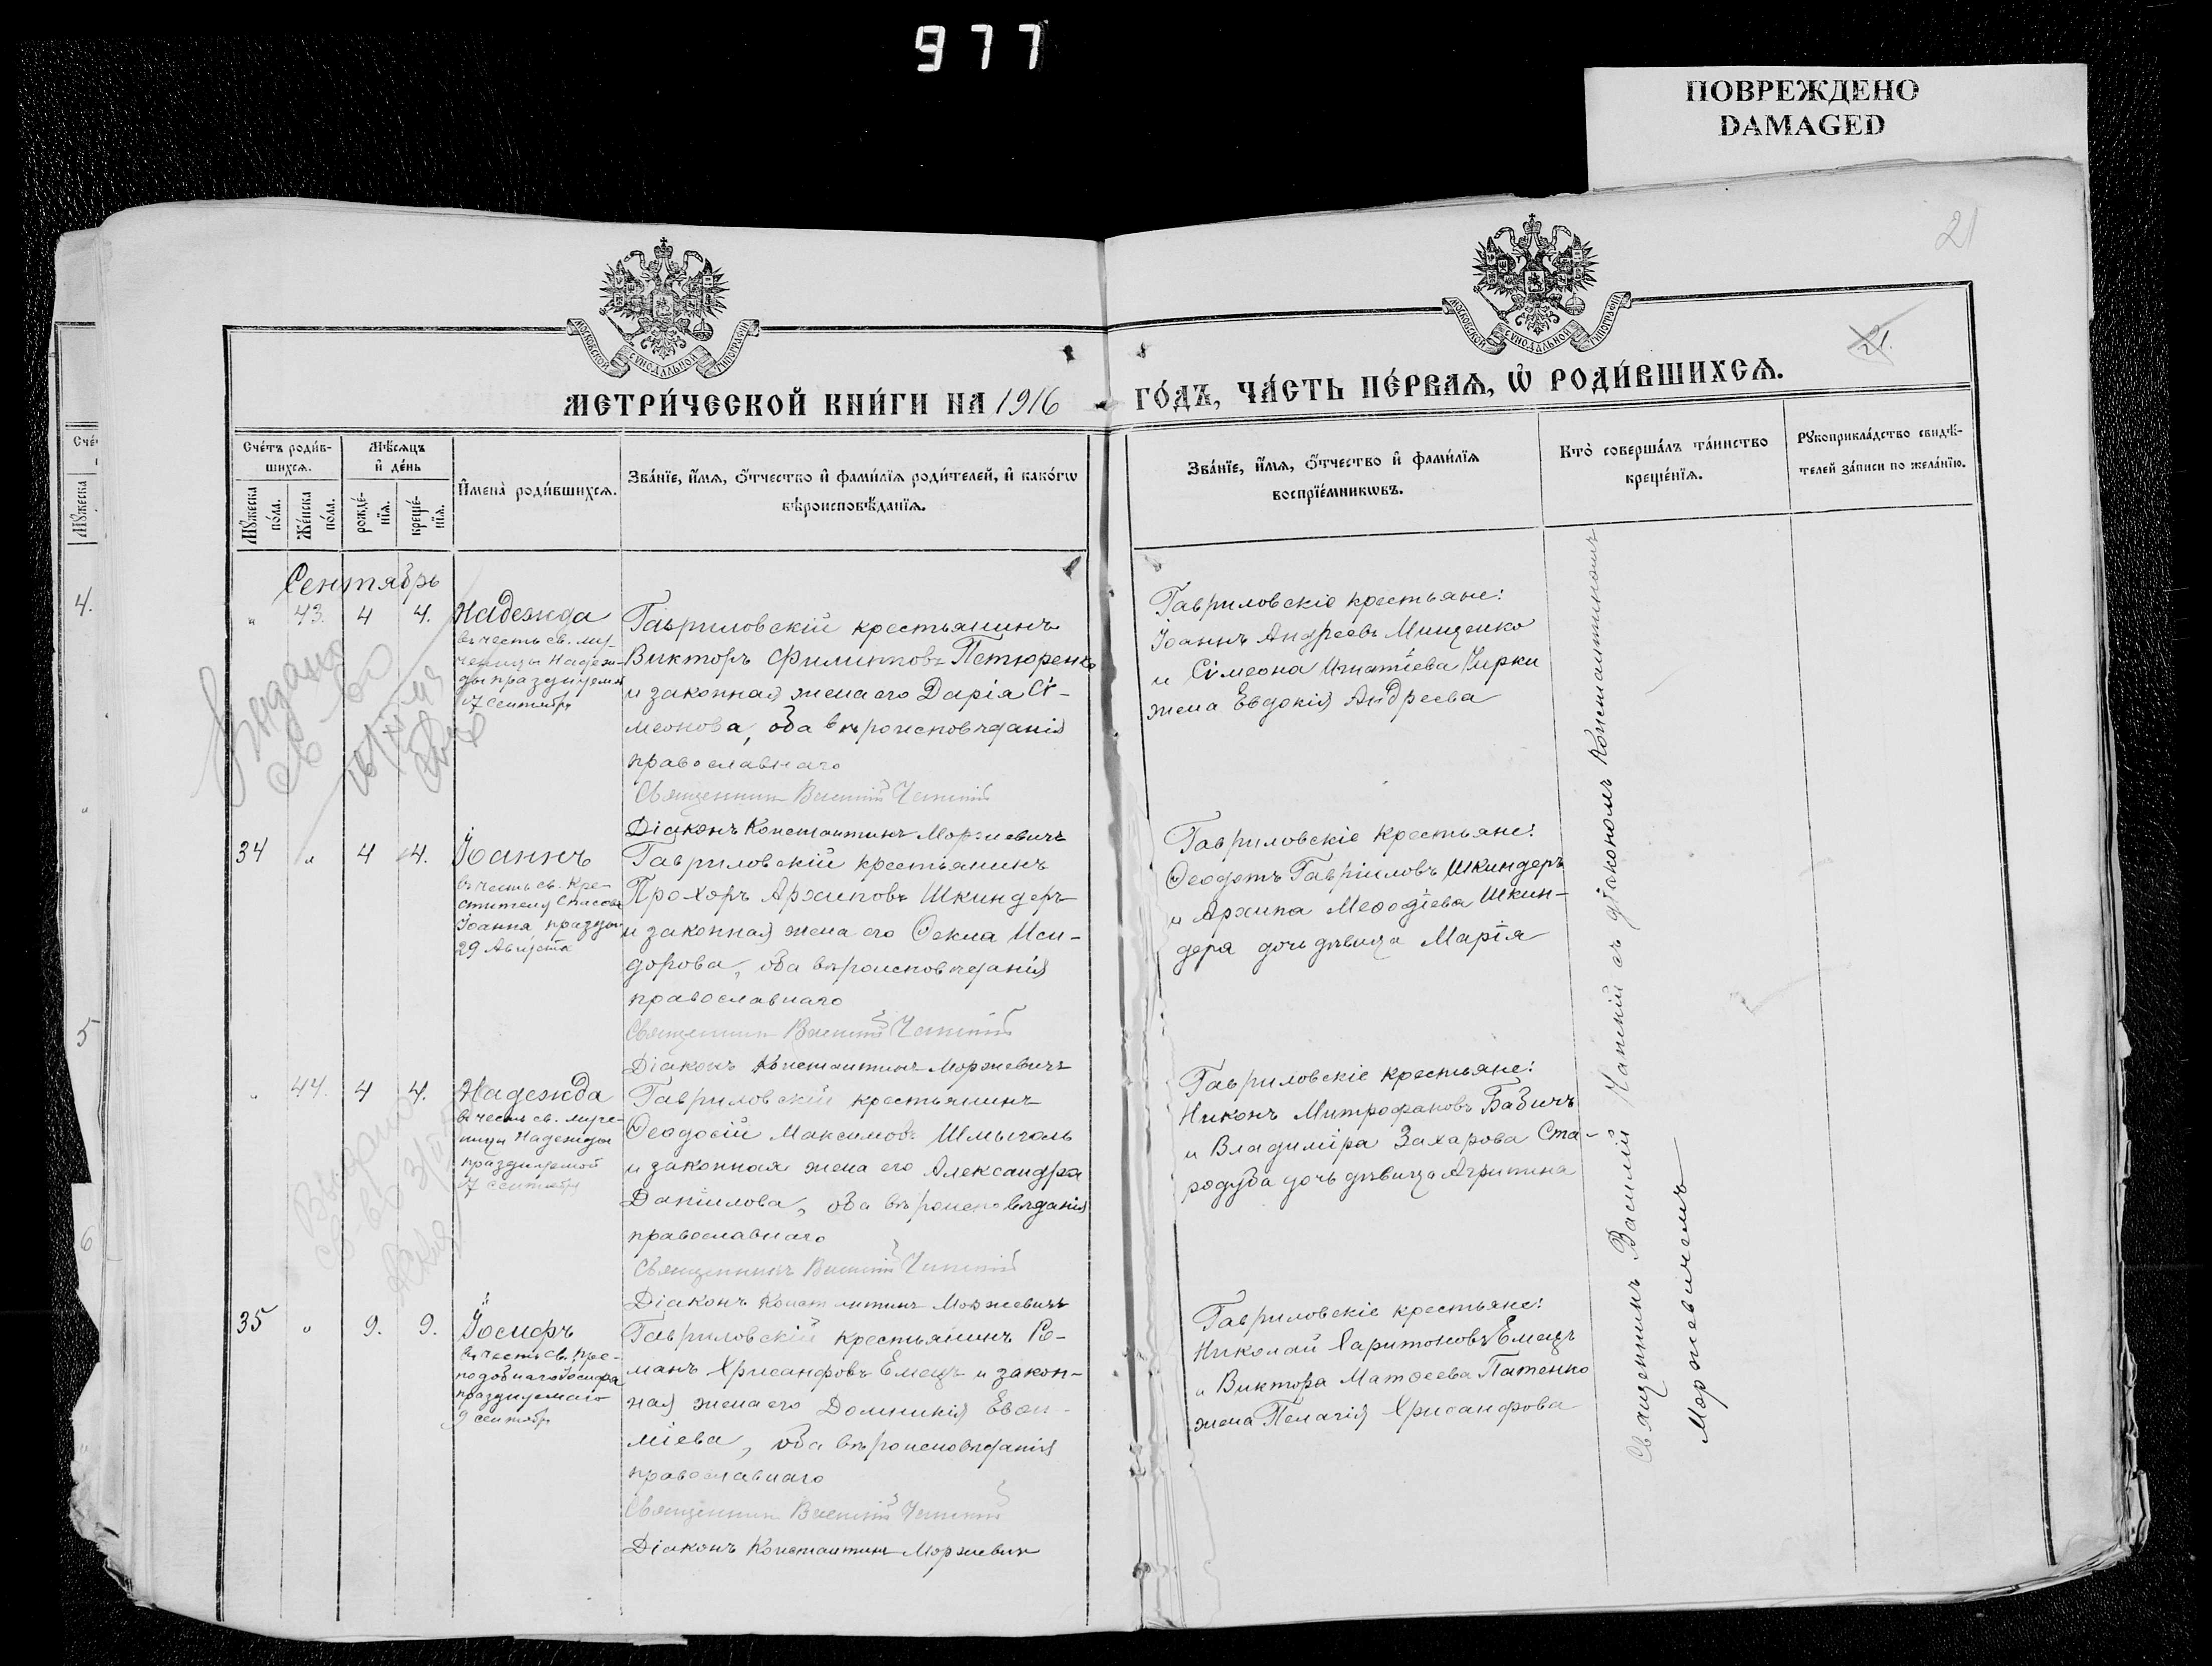 977
ПОВРЕЖДЕНО
DAMAGED
21
21.
МОСКОВСКОЙ СѴНОДАЛЬНОЙ ТИПОГРАФІИ
МОСКОВСКОЙ СѴНОДАЛЬНОЙ ТИПОГРАФІИ
МЕТРИ́ЧЕСКОЙ КНИ́ГИ НА 1916 ГО́ДЪ, ЧА́СТЬ ПЕ́РВАЯ, Ѡ҆ РОДИ́ВШИХСЯ.
Сче́тъ роди́в-
шихся.
Мѣ́сяцъ
и҆ де́нь
Мꙋ́жеска
по́ла.
Же́нска
по́ла.
рожде́-
нїя.
креще́-
нїя.
И҆мена̀ роди́вшихся.
Зва́нїе, и҆́мя, ѻ҆́тчество и҆ фами́лїя роди́телей, и҆ како́гѡ
вѣроисповѣ́данїя.
Зва́нїе, и҆́мя, ѻ҆́тчество и҆ фами́лїя
воспрїе́мникѡвъ.
Кто̀ соверша́лъ та́инство
креще́нїя.
Рꙋкоприкла́дство свидѣ́-
телей за́писи по жела́нїю.
Мꙋ́жеска
4.
5
6
Сентябрь
" 43. 4 4. Надежда
въ честь св. му-
ченицы Надеж-
ды празднуемой
17 сентября
Гавриловскій крестьянинъ
Викторъ Филипповъ Петюренко
и законная жена его Дарія Сѵ-
меонова, оба вѣроисповѣданія
православнаго
Священникъ Василій Чапскій
Діаконъ Константинъ Моржевичъ
Гавриловскіе крестьяне:
Іоаннъ Андреевъ Мищенко
и Сѵмеона Игнатіева Чирки
жена Евдокія Андреева
34 " 4 4. Іоаннъ
въ честь св. Кре-
стителя Спасова
Іоанна праздн.
29 Августа
Гавриловскій крестьянинъ
Прохоръ Архиповъ Шкиндеръ
и законная жена его Ѳекла Иси-
дорова, оба вѣроисповѣданія
православнаго
Священникъ Василій Чапскій
Діаконъ Константинъ Моржевичъ
Гавриловскіе крестьяне:
Ѳеодотъ Гавріиловъ Шкиндеръ
и Архипа Меѳодіева Шкин-
дера дочь дѣвица Марія
" 44. 4 4. Надежда
въ честь св. муче-
ницы Надежды
празднуемой
17 сентября
Гавриловскій крестьянинъ
Ѳеодосій Максимовъ Шмыголь
и законная жена его Александра
Даніилова, оба вѣроисповѣданія
православнаго
Священникъ Василій Чапскій
Діаконъ Константинъ Моржевичъ
Гавриловскіе крестьяне:
Никонъ Митрофановъ Бабичъ
и Владиміра Захарова Ста-
родуба дочь дѣвица Агрипина
35 " 9. 9. Іосифъ
въ честь св. пре-
подобнаго Іосифа
празднуемаго
9 сентября
Гавриловскій крестьянинъ Ро-
манъ Хрисанфовъ Емецъ и закон-
ная жена его Домникія Евѳи-
міева, оба вѣроисповѣданія
православнаго
Священникъ Василій Чапскій
Діаконъ Константинъ Моржевичъ
Гавриловскіе крестьяне:
Николай Харитоновъ Емецъ
и Виктора Матѳеева Патенко
жена Пелагія Хрисанфова
Священникъ Василій Чапскій съ діакономъ Константиномъ
Моржевичемъ